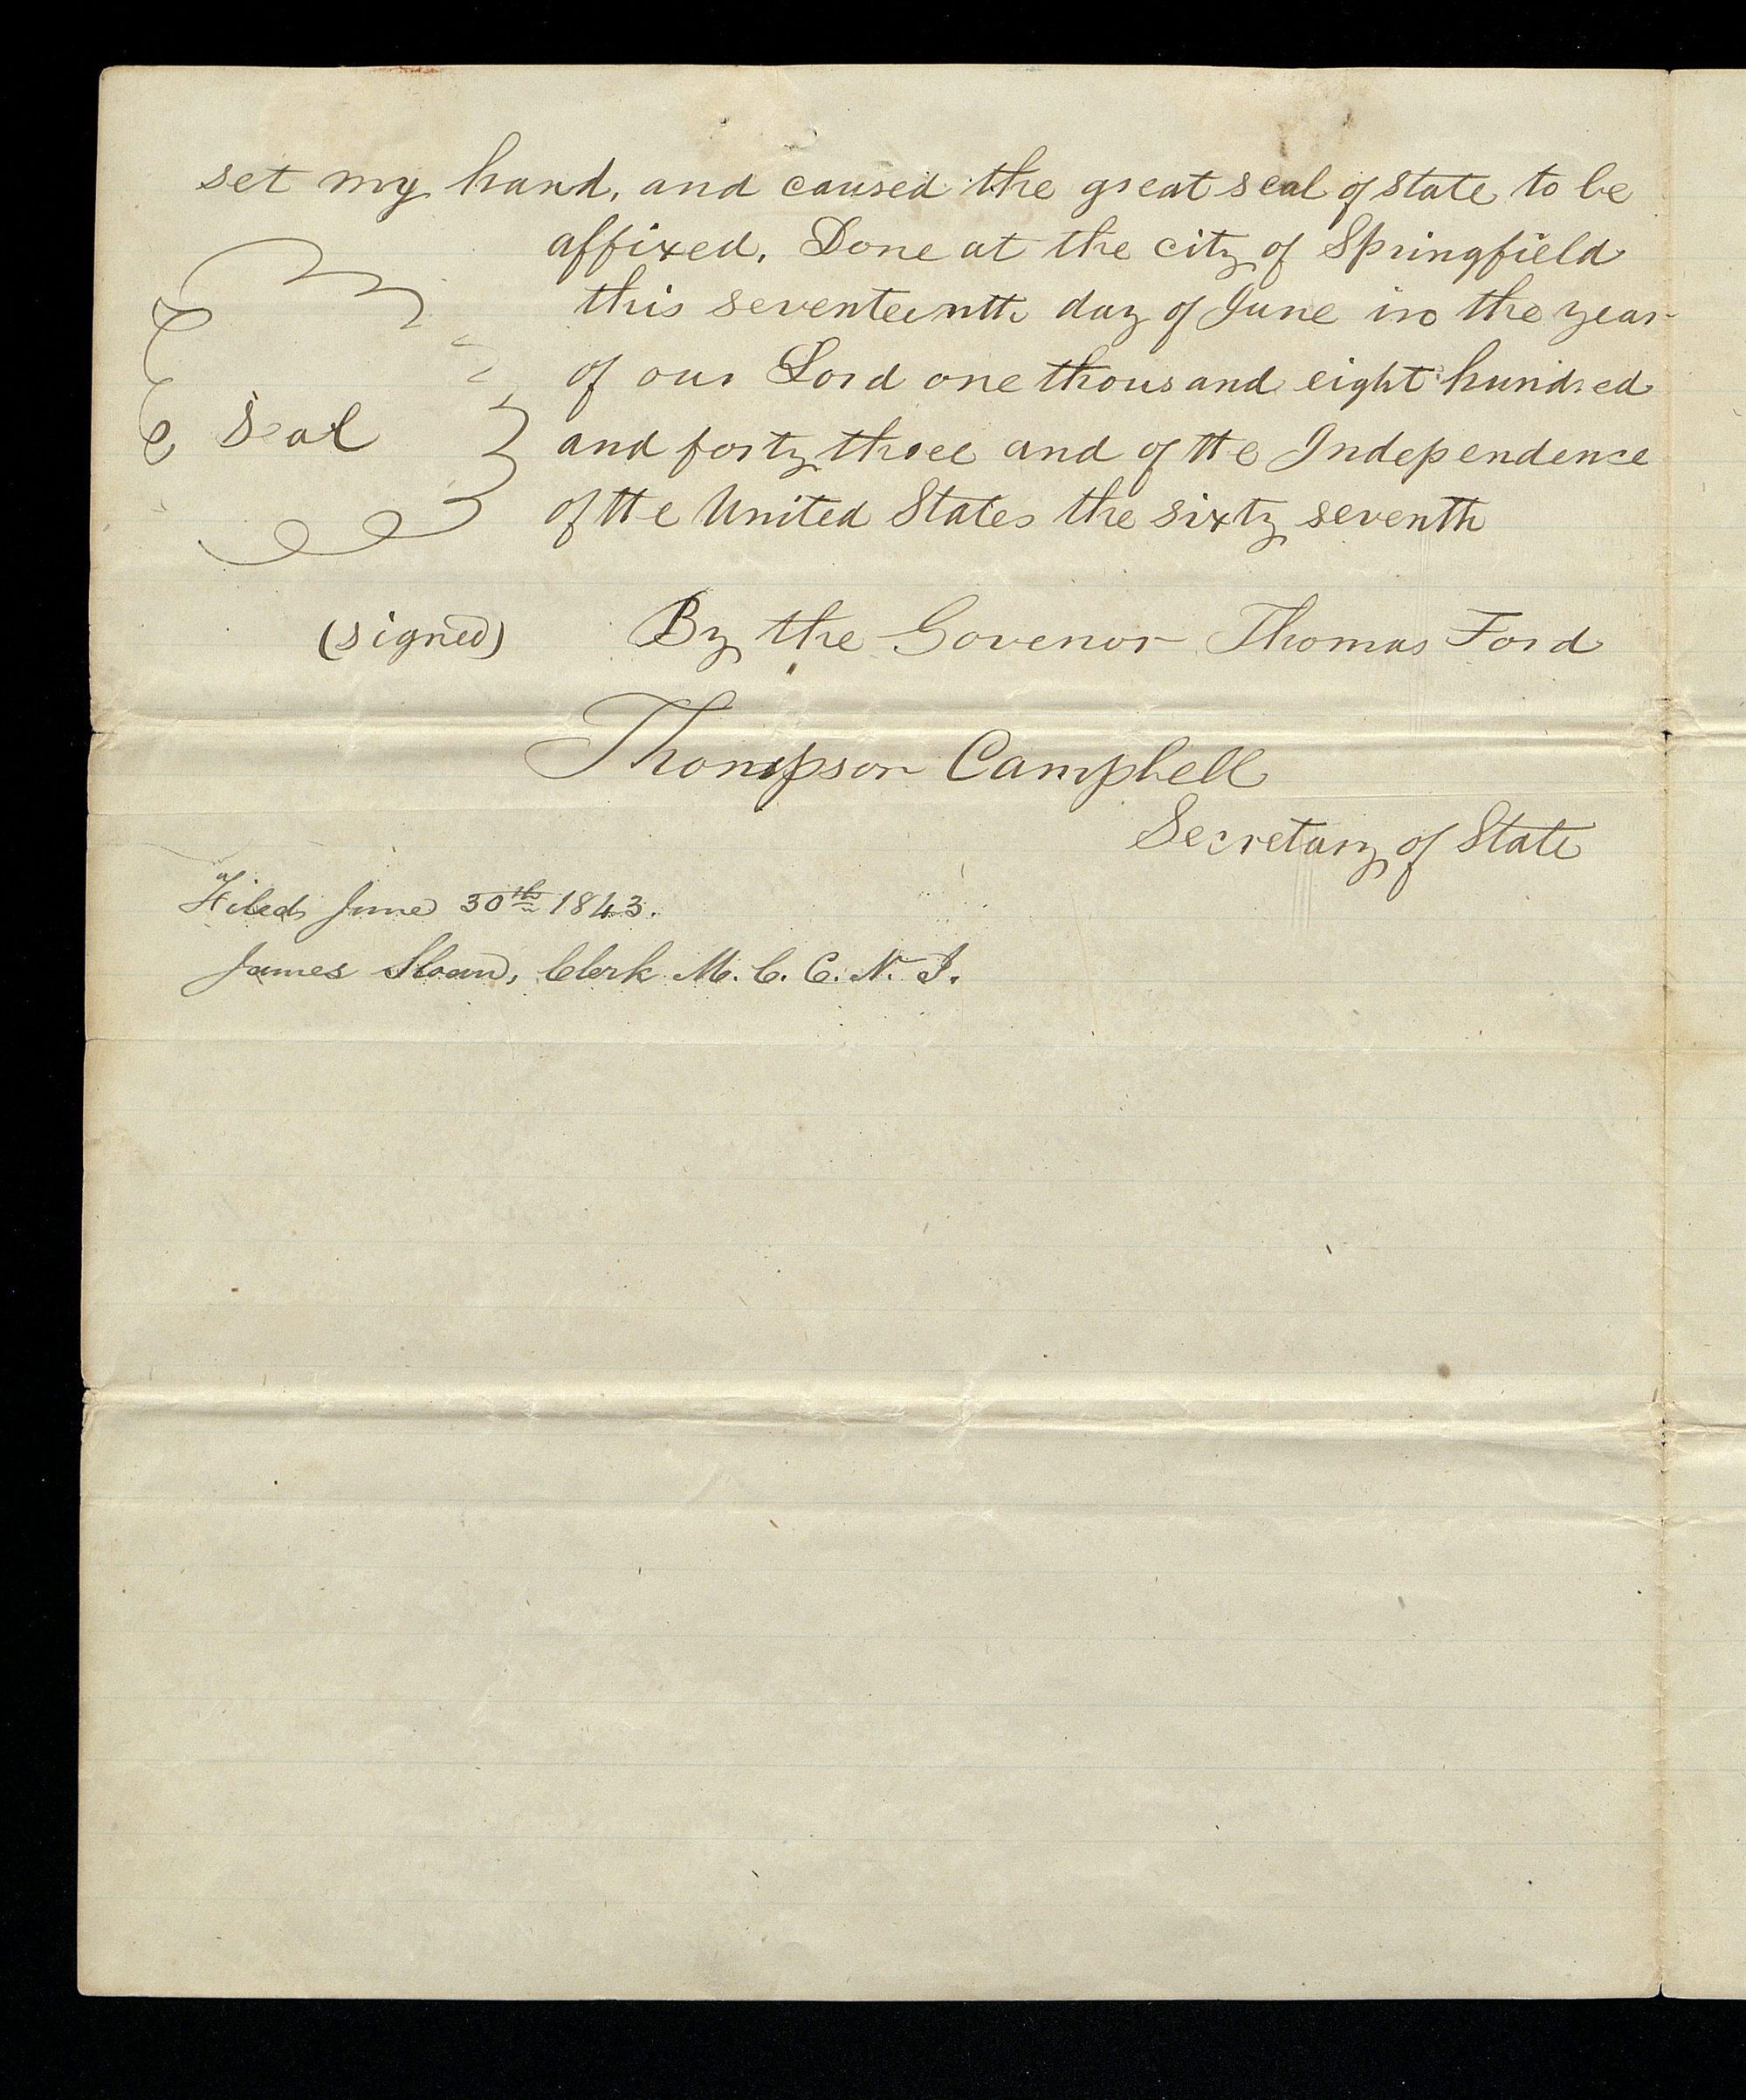 set my hand, and caused the great seal of state to be
affixed. Done at the city of Springfield
this seventeinth day of June in the year
of our Lord one thousand eight hundred
Seal and forty three and of the Independence
of the United States the sixty seventh
(signed) By the Govenor Thomas Ford
Thompson Campbell
Secretary of State
Filed June 30th 1843.
James Sloan, Clerk M. C. C. N. I.